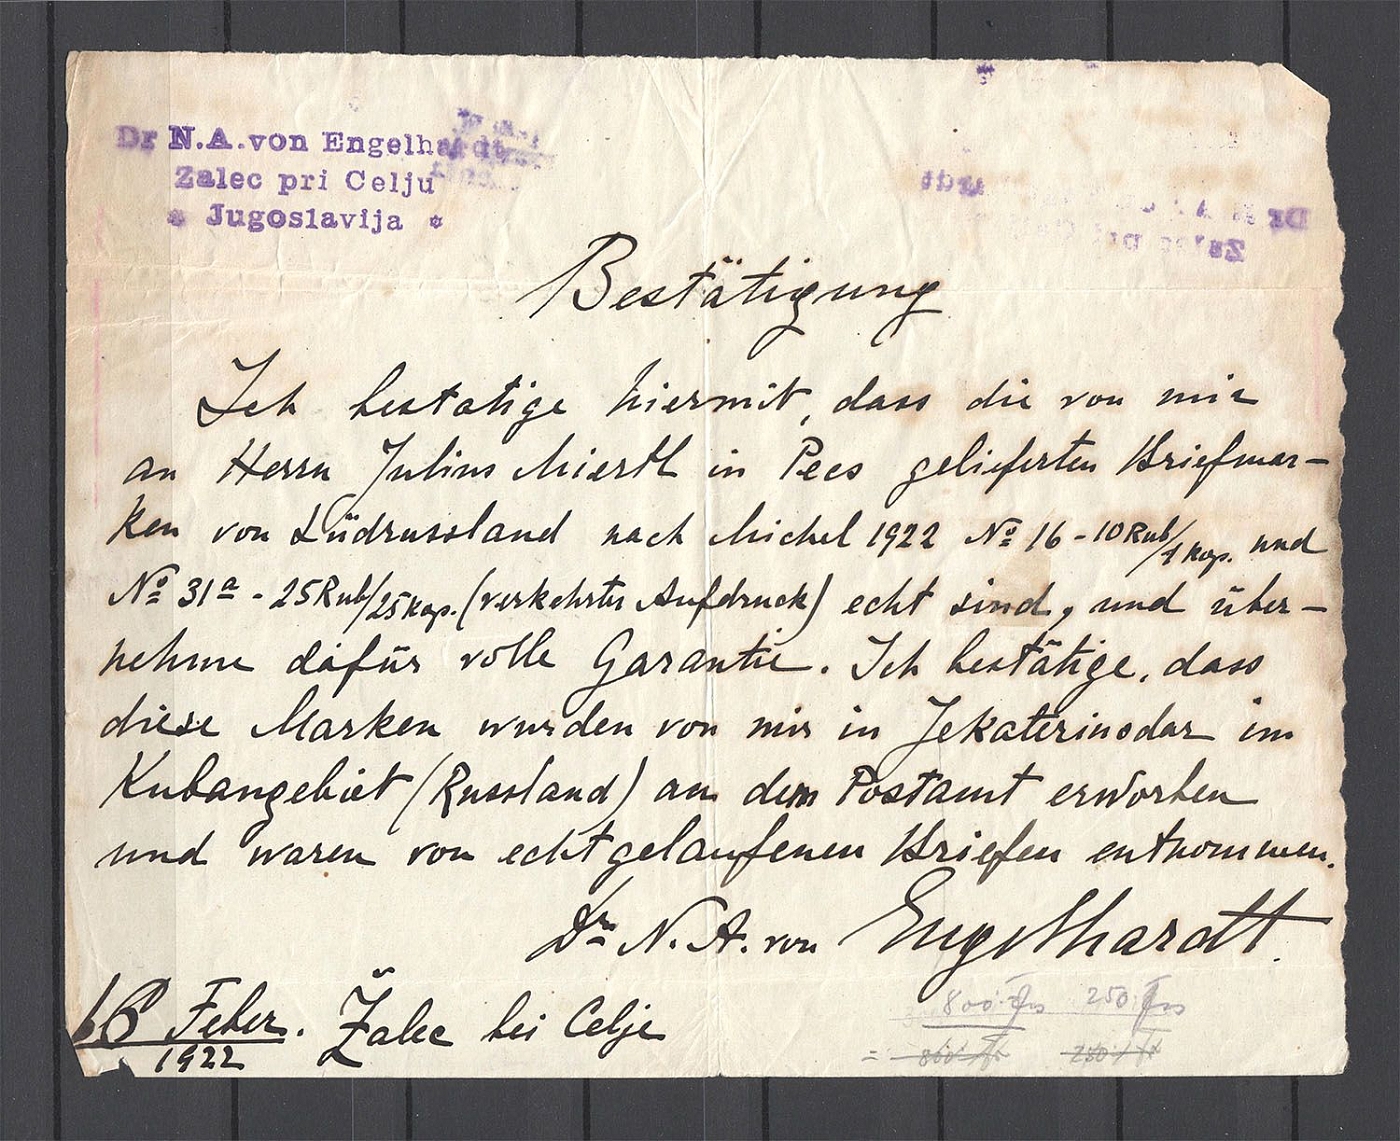 Dr N.A.von Engelhardt
Zalec pri Celju
* Jugoslavija *
Bestätigung
Ich bestatige hiermit, dass die von mir
an Herrn Julius in Pecs gelieferten Briefmar-
ken von Südrussland nach Michel 1922 № 16 - 10 Rub/1 Kop. und
№ 31ª - 25 Rub/25 Kop. (verkehrter Aufdruck) echt sind, und über-
nehme dafür volle Garantie. Ich bestätige, dass
diese Marken wurden von mir in Jekaterinodar im
Kubangebiet (Russland) an dem Postamt erworben
und waren von echt gelaufenen Briefen entnommen.
Dr N. A. von Engelhardt.
16 Feber. Žalec bei Celje
1922
800 250
= 800 250